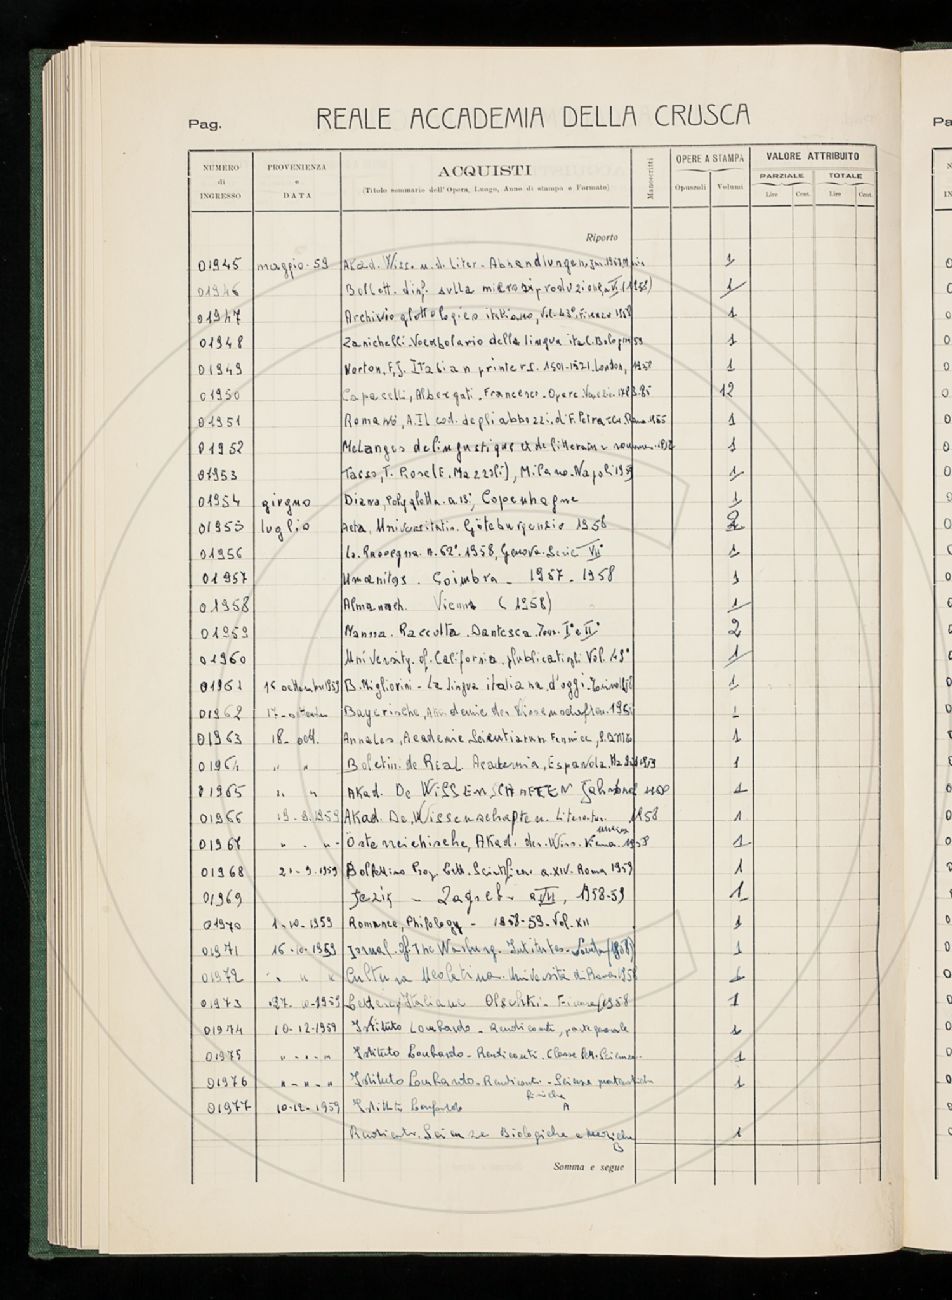 Pag.
REALE ACCADEMIA DELLA CRUSCA
NUMERO di INGRESSO
PROVENIENZA e DATA
ACQUISTI
(Titolo sommario dell'Opera, Luogo, Anno di stampa e Formato)
Manoscritti
OPERE A STAMPA
Opuscoli Volumi
VALORE ATTRIBUITO
PARZIALE TOTALE
Lire Cent. Lire Cent.
Riporto
01945 maggio-59 Akad. Wiss. u. d. Liter. Abhandlungen 1
01946 Bollett. sulla microriproduzione (1958) 1
01947 Archivio glottologico italiano, Vol. 43°. Firenze 1958 1
01948 Zanichelli. Vocabolario della lingua ital. Bologna 59 1
01949 Norton, F.J. Italian printers. 1501-1521. London, 1958 1
01950 Capacelli, Albergati. Francesco. Opere. Venezia. 12
01951 Romanò, A. Il cod. degli abbozzi, d. F. Petrarca. Roma 1955 1
01952 Melanges de linguistique et de litterature romane 1
01953 Tasso, T. Rose (E. Mazzali), Milano. Napoli 1959 1
01954 giugno Copenhagne 1
01955 luglio Acta, Universitatis. Göteburgensis 1958 2
01956 La Rassegna. n. 62°. 1958, Genova. Serie VII° 1
01957 Umanitas. Coimbra - 1957-1958 1
01958 Almanach. Vienna (1958) 1
01959 Manna. Raccolta. Dantesca. Tom. I° e II° 2
01960 University. of. California. publicat Vol. 1
01961 B. Migliorini - La lingua italiana, d'oggi. Torino 1
01962 Bayerische, Akademie der Wissenschaften. 195 1
01963 18- ott. Annales, Academie Scientiarum Fennice, 1
01964 " " Boletin de Real Academia, Espanola. 1959 1
01965 " " Akad. De WISSENSCHAFTEN Jahrbuch 1
01966 19-9.1959 Akad. De Wissenschaften. Literatur. 1958 1
01967 " . " . Österreichische, Akad. der. Wiss. Vienna. 1958 1
01968 21-9.1959 Bollettino a. XIV. Roma 1959 1
01969 Jezik - Zagreb. a VII, 1958-59 1
01970 1-10-1959 Romance, Philology - 1958-59. Vol. XII 1
01971 16-10-1959 Jornal. of The Warburg. Institutes. Londra (1958) 1
01972 " " " Cultura Neolatina. Università di Roma 1958 1
01973 27. -1959 Italiane Olschki. Firenze 1958 1
01974 10-12-1959 Istituto Lombardo - Rendiconti, parte generale 1
01975 " - " - " Istituto Lombardo - Rendiconti. Classe Lett. Scienze. 1
01976 " - " - " Istituto Lombardo. Rendiconti - Scienze matematiche 1
fisiche A
01977 10-12-1959 Istituto Lombardo
Rendiconti. Scienze Biologiche e mediche 1
B
Somma e segue